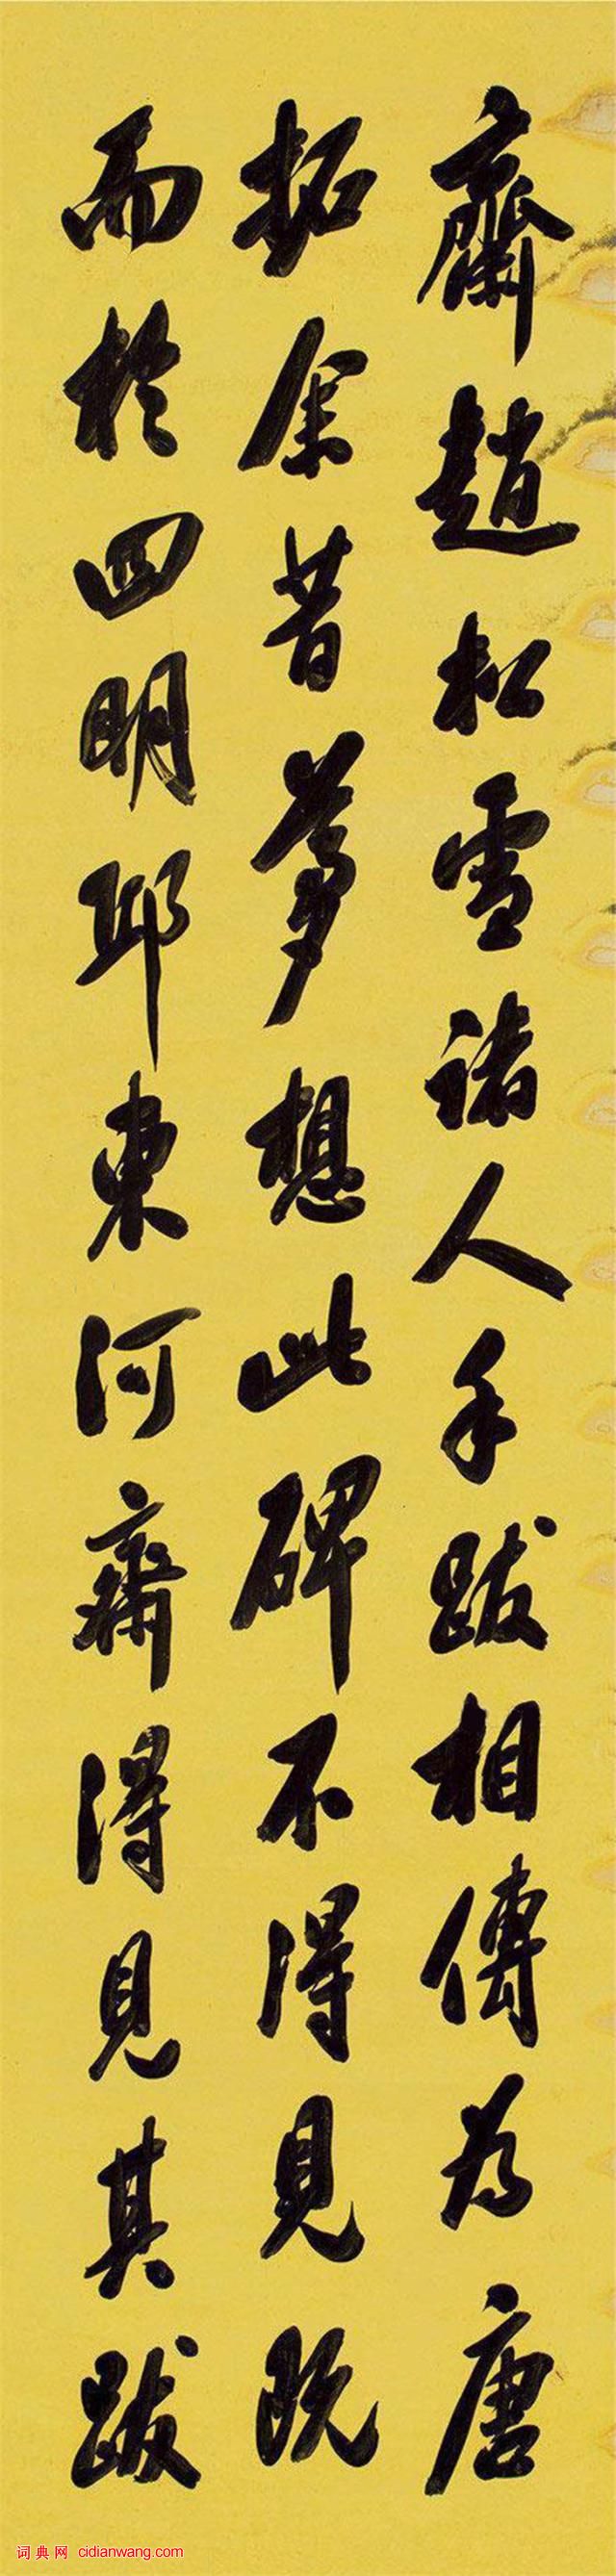 齋趙松雪諸人手跋相傳為唐
拓余昔夢想此碑不得見既
而於四明邱東河齋得見其跋
词典网 cidianwang.com